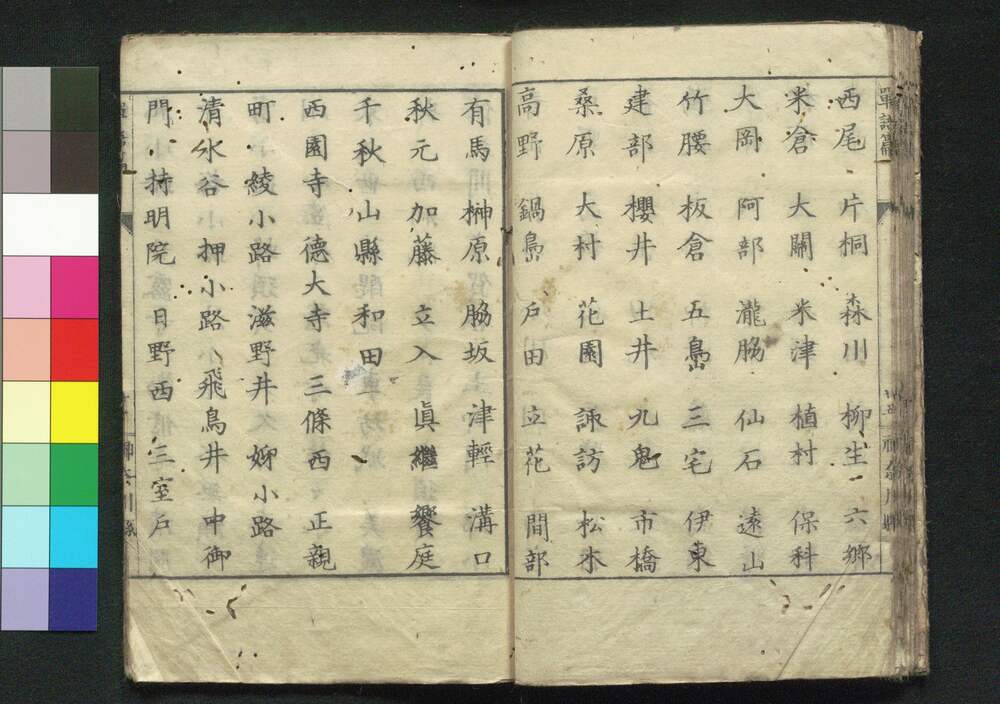 單語篇
西尾 片桐 森川 柳生 六郷
米倉 大關 米津 植村 保科
大岡 阿部 瀧脇 仙石 遠山
竹腰 板倉 五島 三宅 伊東
建部 櫻井 土井 九鬼 市橋
桑原 大村 花園 諏訪 松木
高野 鍋島 戸田 立花 間部
有馬 榊原 脇坂 津輕 溝口
秋元 加藤 立入 眞繼 饗庭
千秋 山縣 和田
西園寺 德大寺 三條西 正親
町 綾小路 滋野井 姉小路
清水谷 押小路 飛鳥井 中御
門 持明院 日野西 三室戸